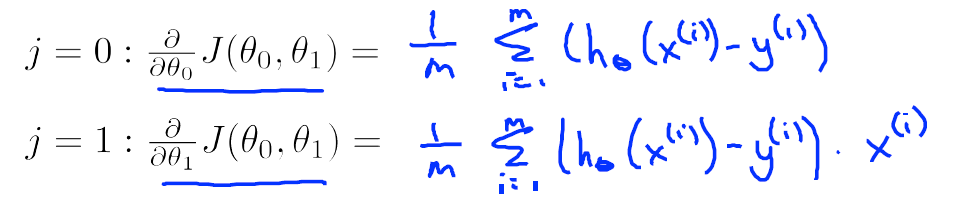 j = 0 : ∂/∂θ₀ J(θ₀, θ₁) = 1/m ∑ᵢ₌₁ᵐ (h_θ(x⁽ⁱ⁾) - y⁽ⁱ⁾)
j = 1 : ∂/∂θ₁ J(θ₀, θ₁) = 1/m ∑ᵢ₌₁ᵐ (h_θ(x⁽ⁱ⁾) - y⁽ⁱ⁾) · x⁽ⁱ⁾